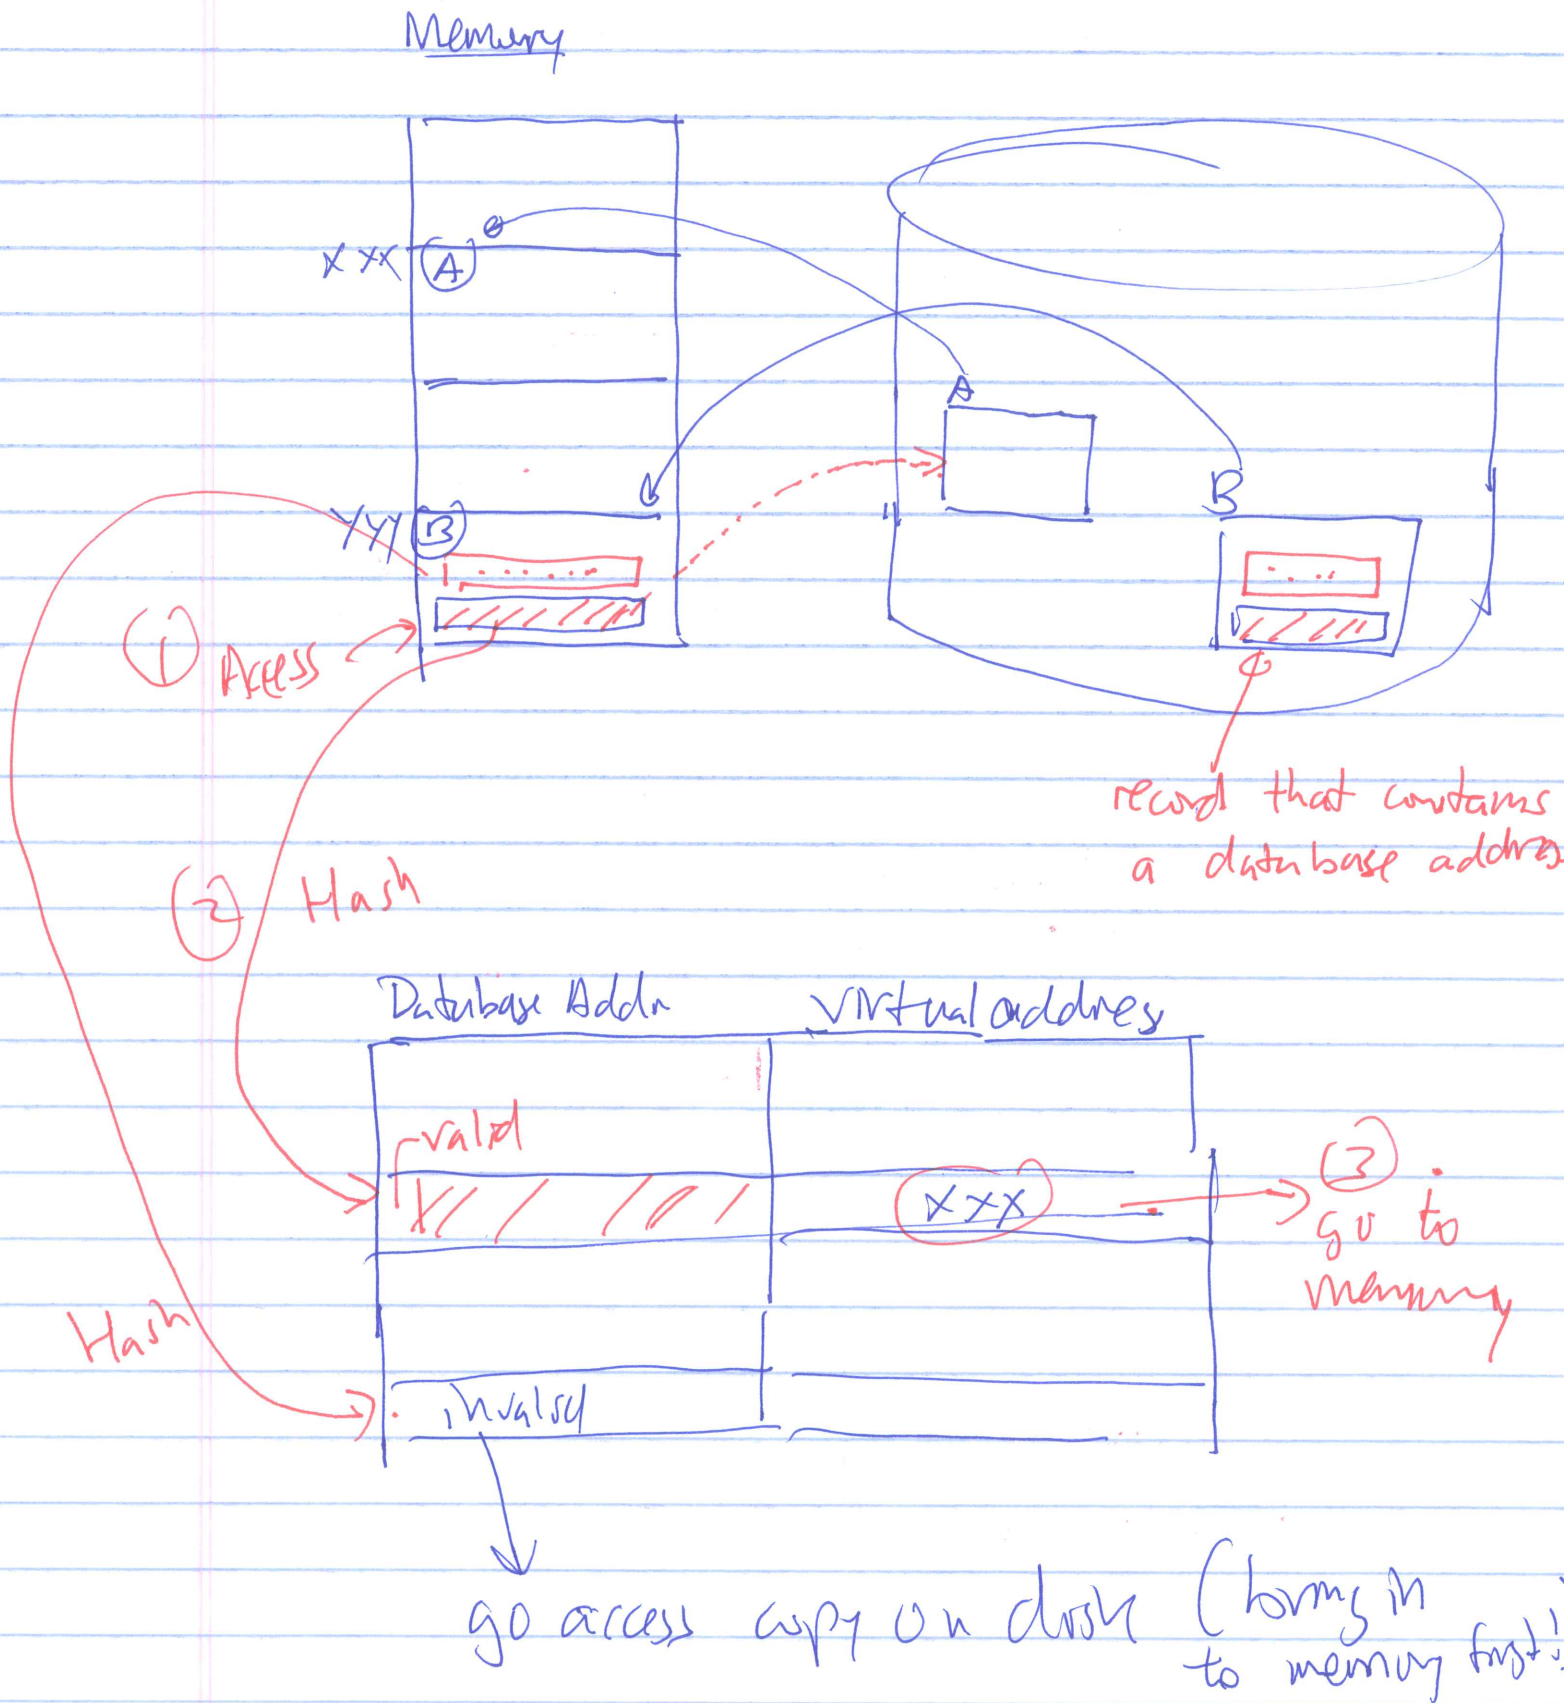 Memory
xxx A
A
B
YYY B
1 Access
record that contains
a database address
2 Hash
Database Addr virtual address
valid
xxx
3
go to
memory
Hash
invalid
go access copy on disk (bring in
to memory first!